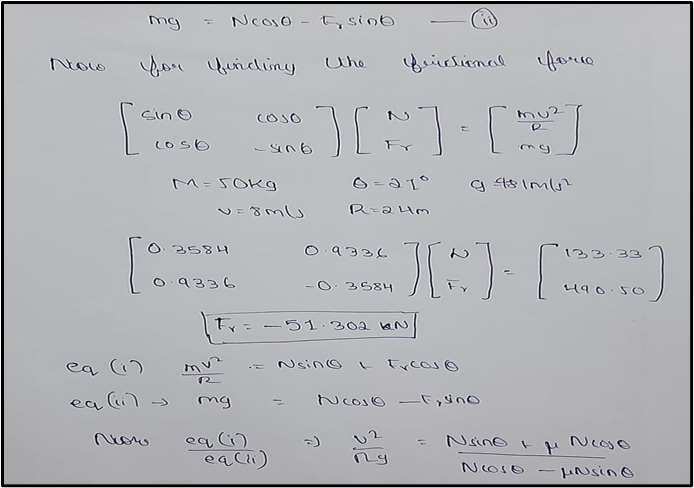 mg = Ncosθ - Fr sinθ —(ii)
Now for finding the frictional force
[ sinθ cosθ ] [ N ] = [ mv²/R ]
[ cosθ -sinθ ] [ Fr ] [ mg ]
M = 50Kg θ = 21° g = 9.81m/s²
v = 8m/s R = 24m
[ 0.3584 0.9336 ] [ N ] = [ 133.33 ]
[ 0.9336 -0.3584 ] [ Fr ] [ 490.50 ]
Fr = -51.302 kN
eq (i) mv²/R = Nsinθ + Frcosθ
eq (ii) → mg = Ncosθ - Frsinθ
Now eq(i)/eq(ii) => v²/rg = Nsinθ + μ Ncosθ / Ncosθ - μNsinθ